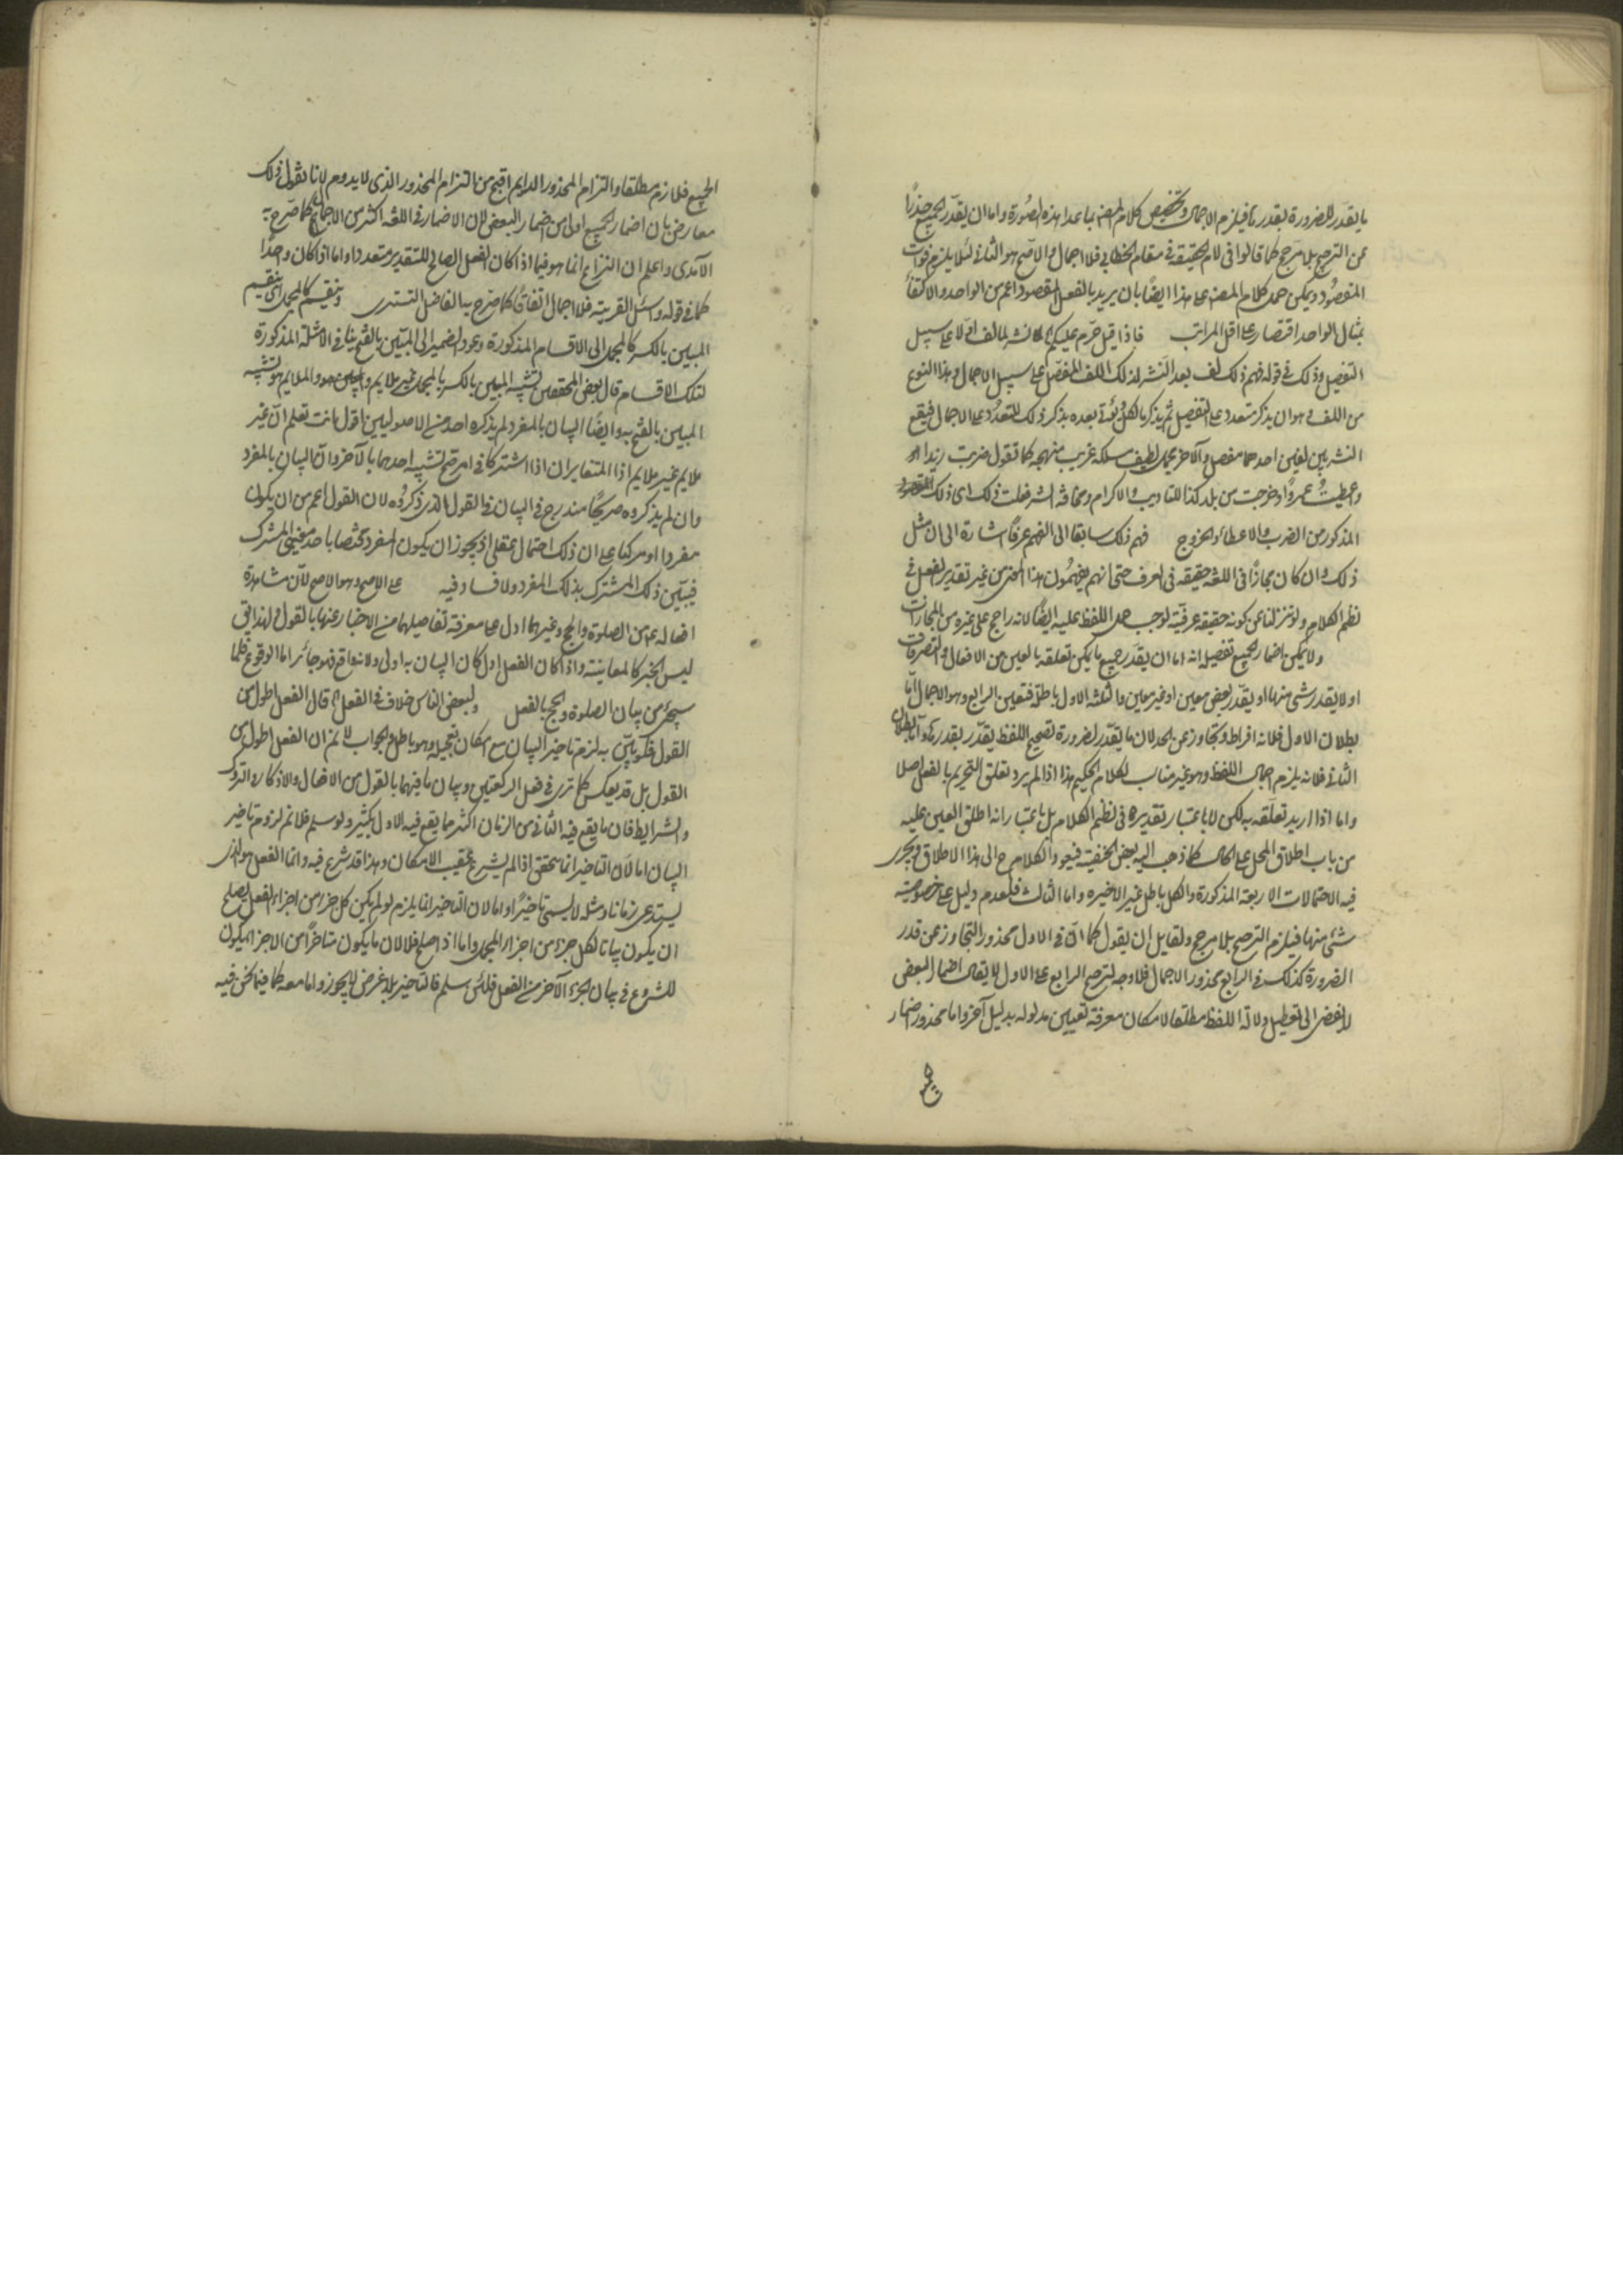 ما يقدر للضرورة بقدر بقدرها فيلزم الاجمال وتخصيص كلام المصنف بما عدا هذه الصورة واما ان يقدر الجميع حذرا
عن الترجيح بلا مرجح كما قالوا في لام الحقيقة في مقام الخطابي فلا اجمال والاصح هو الثاني لئلا يلزم فوت
المقصود ويمكن حمل كلام المصنف على هذا ايضا بان يريد بالفعل المقصود اعم من الواحد والاكتفاء
بمثال الواحد اقتصار على اقل المراتب فاذا قيل حرم عليكم نشر لما لف اولا على سبيل
التفصيل وذلك في قوله فهم ذلك لف بعد النشر لذلك اللف المفصل على سبيل الاجمال وهذا النوع
من اللف هو ان يذكر متعدد على التفصيل ثم يذكر ما لكل ويؤتى بعده بذكر ذلك المتعدد على الاجمال فيقع
النشر بين لفين احدهما مفصل والآخر مجمل لطيف مسلكه غريب منهجه كما تقول ضربت زيدا
واعطيت عمروا وخرجت من بلد كذا للتأديب والاكرام ومخافة الشر فعلت ذلك اى ذلك
المذكور من الضرب والاعطاء والخروج فهم ذلك سابقا الى الفهم عرفا اشارة الى ان مثل
ذلك وان كان مجازا في اللغة حقيقة في العرف حتى انهم يفهمون هذا المعنى من غير تقدير الفعل في
نظم الكلام ولو تنزلنا عن كونه حقيقة عرفية لوجب حمل اللفظ عليه ايضا لانه راجح على غيره من المجازات
ولا يمكن اضمار الجميع تفصيله انه اما ان يقدر جميع ما يمكن تعلقه بالعين من الافعال والتصرفات
او لا يقدر شى منها او يقدر بعض معين او غير معين والثلثة الاول باطلة فتعين الرابع وهو الاجمال اما
بطلان الاول فلانه افراط وتجاوز عن الحد لان ما يقدر لضرورة تصحيح اللفظ يقدر بقدرها واما بطلان
الثاني فلانه يلزم اجمال اللفظ وهو غير مناسب لكلام الحكيم هذا اذا لم يرد تعلق التحريم بالفعل اصلا
واما اذا اريد تعلقه به لكن لا باعتبار تقديره في نظم الكلام بل باعتبار انه اطلق العين عليه
من باب اطلاق المحل على الحال كما ذهب اليه بعض الحنفية فيعود الكلام ح الى هذا الاطلاق ويجرى
فيه الاحتمالات الاربعة المذكورة والكل باطل غير الاخيره واما الثالث فلعدم دليل على خصوصية
شئ منها فيلزم الترجيح بلا مرجح ولقايل ان يقول كما ان في الاول محذور التجاوز عن قدر
الضرورة كذلك في الرابع محذور الاجمال فلا وجه لترجيح الرابع على الاول لا يقال اضمار البعض
لا يفضى الى تعطيل دلالة اللفظ مطلقا لامكان معرفة تعيين مدلوله بدليل آخر واما محذور اضمار
الجميع فلازم مطلقا والتزام المحذور الدايم اقبح من التزام المحذور الذى لا يدوم لانا نقول ذلك
معارض بان اضمار الجميع اولى من اضمار البعض لان الاضمار في اللغة اكثر من الاجمال كما صرح به
الآمدى واعلم ان النزاع انما هو فيما اذا كان الفعل الصالح للتقدير متعددا واما اذا كان واحدا
كما في قوله واسئل القرية فلا اجمال اتفاقا كما صرح به الفاضل التسترى وينقسم كالمجمل اى ينقسم
المبين بالكسر كالمجمل الى الاقسام المذكورة وعود الضمير الى المبين بالفتح ينافي الامثلة المذكورة
لتلك الاقسام قال بعض المحققين تشبيه المبين بالكسر بالمجمل غير ملايم والملايم هو تشبيه
المبين بالفتح به وايضا البيان بالمفرد لم يذكره احد من الاصوليين اقول انت تعلم ان غير
ملايم غير ملايم اذا المتغايران اذا اشتركا في امر صح تشبيه احدهما بالآخر وان البيان بالمفرد
وان لم يذكروه صريحا مندرج في البيان بالقول الذى ذكروه لان القول اعم من ان يكون
مفردا او مركبا على ان ذلك احتمال عقلى اذ يجوز ان يكون المفرد مختصا باحد معنيى المشترك
فيبين ذلك المشترك بذلك المفرد ولا فساد فيه على الاصح وهو الاصح لان مشاهدة
افعاله عم من الصلوة والحج وغيرهما ادل على معرفة تفاصيلها من الاخبار عنها بالقول ولهذا يق
ليس الخبر كالمعاينة واذا كان الفعل ادل كان البيان به اولى ولانه واقع فهو جائز اما الوقوع فلما
سيجئ من بيان الصلوة والحج بالفعل ولبعض الناس خلاف في الفعل قال الفعل اطول من
القول فلو بين به لزم تاخير البيان مع امكان تعجيله وهو باطل والجواب لا نم ان الفعل اطول من
القول بل قد يعكس كما ترى في فعل الركعتين وبيان ما فيهما بالقول من الافعال والاذكار والتروك
والشرايط فان ما يقع فيه الثاني من الزمان اكثر مما يقع فيه الاول بكثير ولو سلم فلا نم لزوم تاخير
البيان اما لان التاخير انما يتحقق اذا لم يشرع عقيب الامكان وهذا قد شرع فيه وانما الفعل هو الذى
يستدعى زمانا ومثله لا يسمى تاخيرا واما لان التاخير انما يلزم لو لم يكن كل جزء من اجزاء الفعل يصلح
ان يكون بيانا لكل جزء من اجزاء المجمل واما اذا صلح فلا لان ما يكون متاخرا من الاجزاء يكون
للشروع في بيان الجزء الآخر من الفعل فلئن سلم فالتاخير بلا غرض لا يجوز واما معه كما فيما نحن فيه